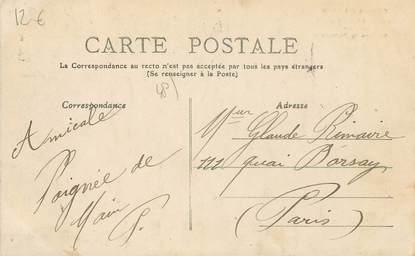 12 €
CARTE POSTALE
La Correspondance au recto n'est pas acceptée par tous les pays étrangers
(Se renseigner à la Poste)
Correspondance
Adresse
Amicale
Poignée de
Main
P.
Mr Glaude
111 quai D'orsay
(Paris)